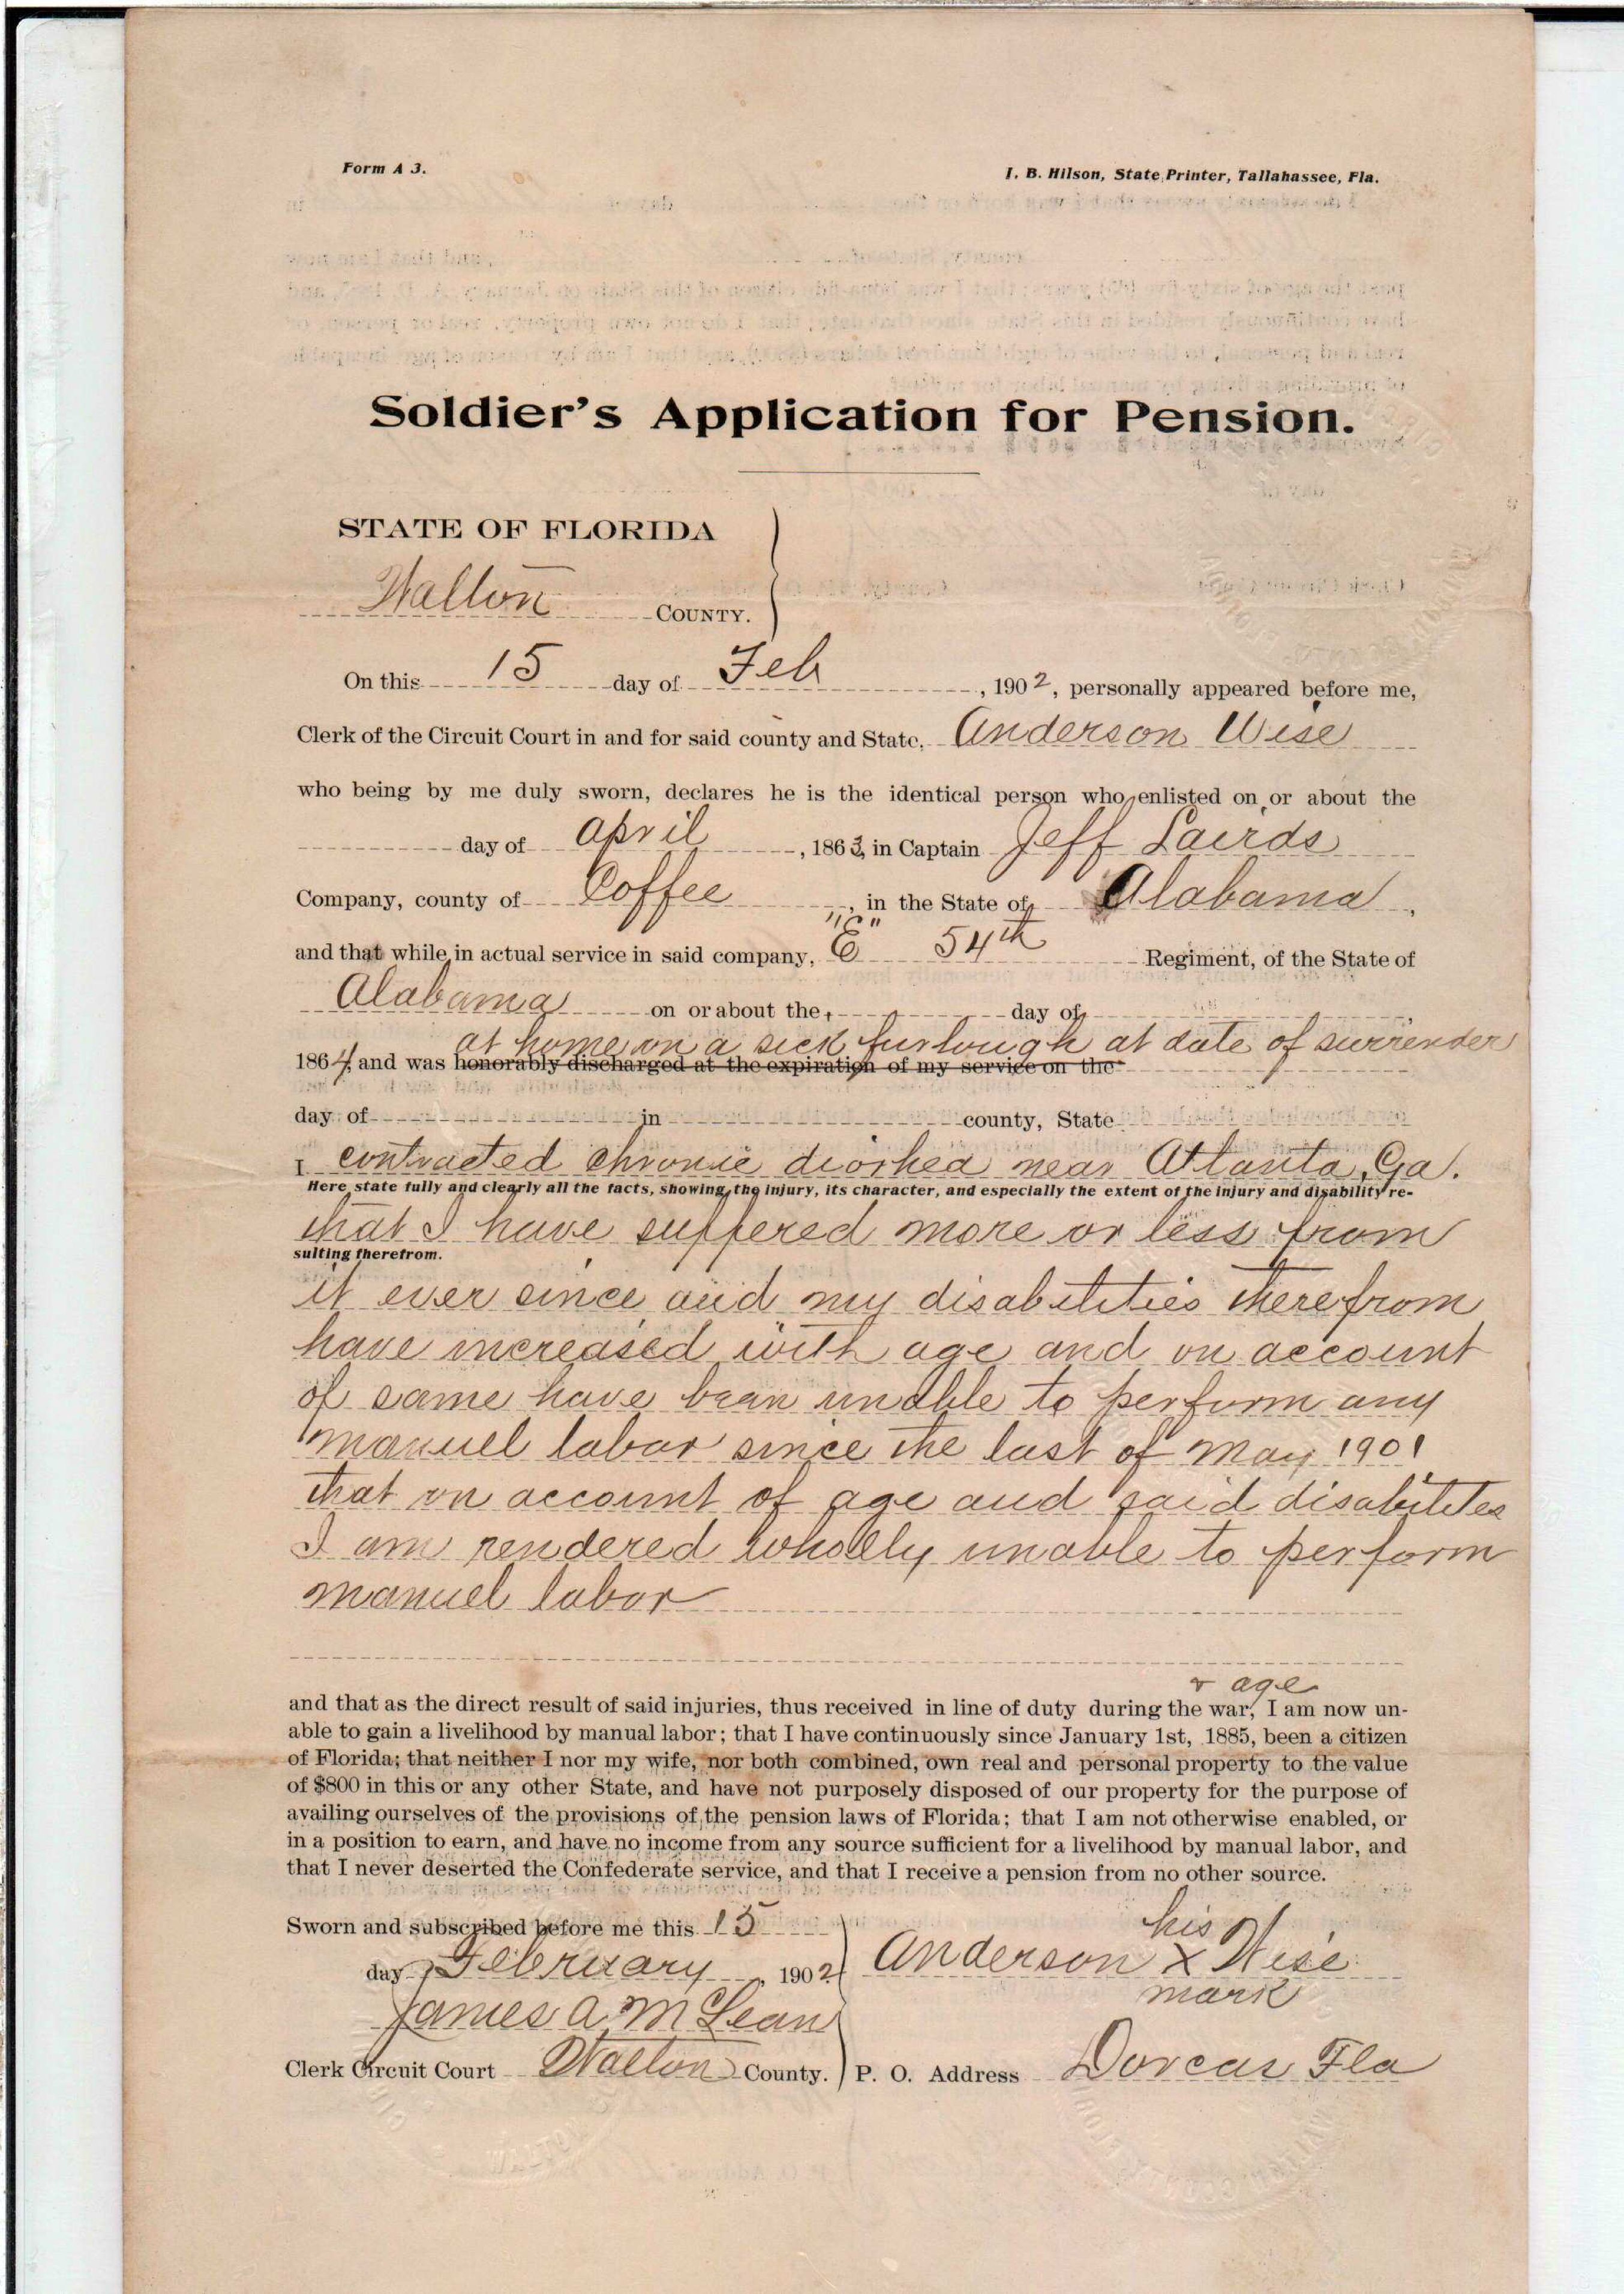 Form A 3.
I. B. Hilson, State Printer, Tallahassee, Fla.
Soldier's Application for Pension.
STATE OF FLORIDA
Walton COUNTY.
On this 15 day of Feb , 1902, personally appeared before me,
Clerk of the Circuit Court in and for said county and State, Anderson Wise
who being by me duly sworn, declares he is the identical person who enlisted on or about the
day of April , 1863, in Captain Jeff Lairds
Company, county of Coffee , in the State of Alabama ,
"C"
and that while in actual service in said company, E 54th Regiment, of the State of
Alabama on or about the day of
at home on a sick furlough at date of surrender
1864, and was honorably discharged at the expiration of my service on the
day of in county, State
I contracted chronic diorhea near Atlanta, Ga.
Here state fully and clearly all the facts, showing the injury, its character, and especially the extent of the injury and disability re-
that I have suffered more or less from
sulting therefrom.
it ever since and my disabilities therefrom
have increased with age and on account
of same have bean unable to perform any
manuel labor since the last of May 1901
that on account of age and said disabilites
I am rendered wholly unable to perform
manuel labor
& age
and that as the direct result of said injuries, thus received in line of duty during the war, I am now un-
able to gain a livelihood by manual labor; that I have continuously since January 1st, 1885, been a citizen
of Florida; that neither I nor my wife, nor both combined, own real and personal property to the value
of $800 in this or any other State, and have not purposely disposed of our property for the purpose of
availing ourselves of the provisions of the pension laws of Florida; that I am not otherwise enabled, or
in a position to earn, and have no income from any source sufficient for a livelihood by manual labor, and
that I never deserted the Confederate service, and that I receive a pension from no other source.
Sworn and subscribed before me this 15
his
day February , 1902 Anderson X Wise
mark
James A McLean
Clerk Circuit Court Walton County. P. O. Address Dorcas Fla